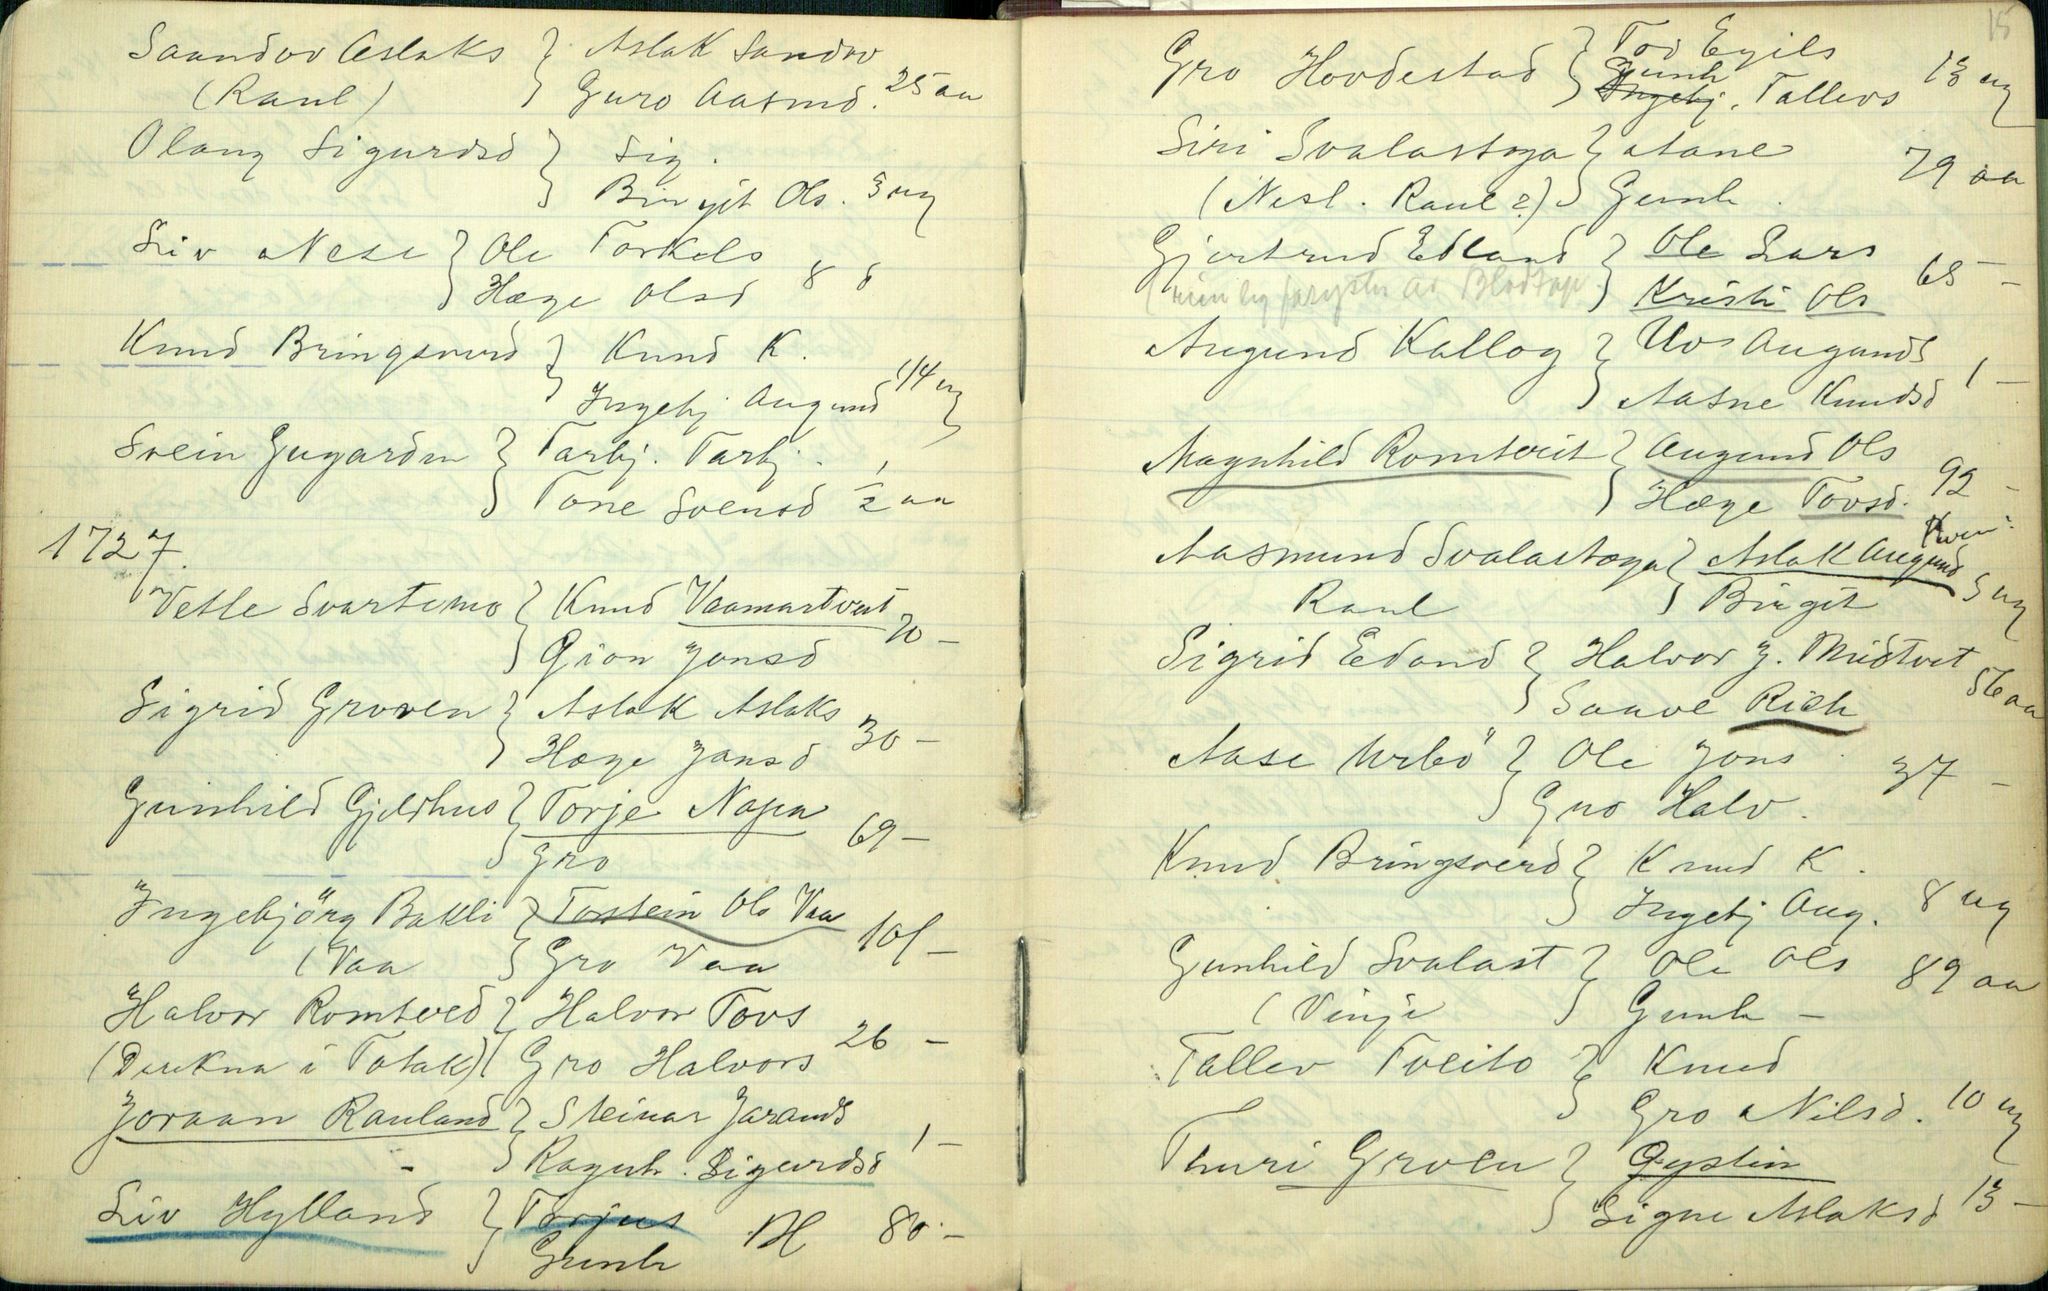 Saandov Aslaks } Aslak Sandov
(Raul) Guro Aasmd. 25 aa
Olaug Sigurdsd } Sig.
Birgit Ols. 3 ug
Liv Nese } Ole Torkels
Hæge Olsd 8 d
Knud Bringsverd } Knud K.
Ingebj Augund 1/4 ug
Svein Gugarden } Tarbj. Tarbj.
Tone Svensd 1/2 aa
1727.
Vetle Svartemo } Knud Vaamartveit
Gion Jonsd 70 –
Sigrid Groven } Aslak Aslaks
Hæge Jonsd 30 –
Gunhild Gjeldhus } Torje Napa
Gro 69 –
Ingebjörg Bakli } Torstein Ols Vaa
(Vaa Gro Vaa 101 –
Halvor Romtved } Halvor Tovs
(Drukna i Totak) Gro Halvors 26 –
Joraan Rauland } Steinar Jarands
- Ragnh. Sigurdsd 1 –
Liv Hylland } Torjus
Gunh 80 –
15
Gro Hovdestad } Tov Egils
Gunh
Ingebj. Tallevs 13 ug
Siri Svalastoga } Aane
(Nesl. Raul?) Gunh. 79 aa
Gjertrud Edland } Ole Lars
Kristi Ols 65 –
Augund Kallog } Uv Augunds
Aasne Knudsd 1 –
Magnhild Romtveit } Augund Ols
Hæge Tovsd. 92 –
Aasmund Svalastoga } Aslak Augund
Raul Birgit 5 ug
Sigrid Edand } Halvor J. Midtveit
Saave Rich 56 aa
Aase Urbö } Ole Jons
Gro Halv. 37 –
Knud Bringsverd } Knud K.
Ingebj Aug. 8 ug
Gunhild Svalast } Ole Ols
(Vinje Gunh – 89 aa
Tallev Tveito } Knud
Gro Nilsd. 10 ug
Thuri Groven } Øystin
Signe Aslaksd 13 –